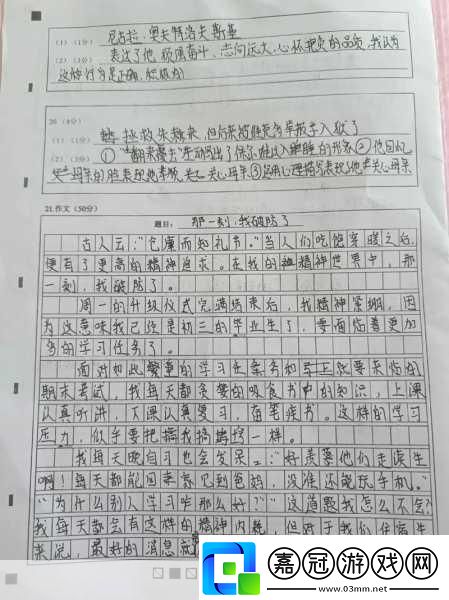 (1)(1分) 尼古拉·奥夫特洛夫斯基
(2)(3分) 表达了他 顽强奋斗、志向远大、心怀抱负的品质,我认为
这种行为是正确、积极的
20 (4分)
(1)(1分) 拯救朱赫来,但后来被维克多举报关入狱了
(2)(3分) ①"翻来覆去"生动写出了保尔难以入睡的形象②他回忆
母亲的脸表现他孝顺 关心母亲③运用心理描写表现了他 关心母亲
21.作文(50分)
题目: 那一刻,我破防了
古人云:"仓廪而知礼节。"当人们吃饱穿暖之后,
便有了更高的精神追求。在我的精神世界中,那
一刻,我破防了。
周一的升级仪式完满结束后,我精神紧绷,因
为这意味我已经是初三的毕业生了,要面临着更加
多的学习任务了。
面对如此繁重的学习任务和马上就要来临的
期末考试,我每天都贪婪的吸食书中的知识,上课
认真听讲,下课认真复习,奋笔疾书。这样的学习
压力,似乎要把我摘垮一样。
我每天晚自习也会发呆:"好羡慕他们走读生
啊!每天都能回家见到爸妈,没准还能玩手机。"
"为什么别人学习咋那么好?""这道题我怎么不会?"
我每天都会有这样的精神内耗,但对于我们住宿生
来说,最好的消息就
嘉冠游戏网
www.03mm.net